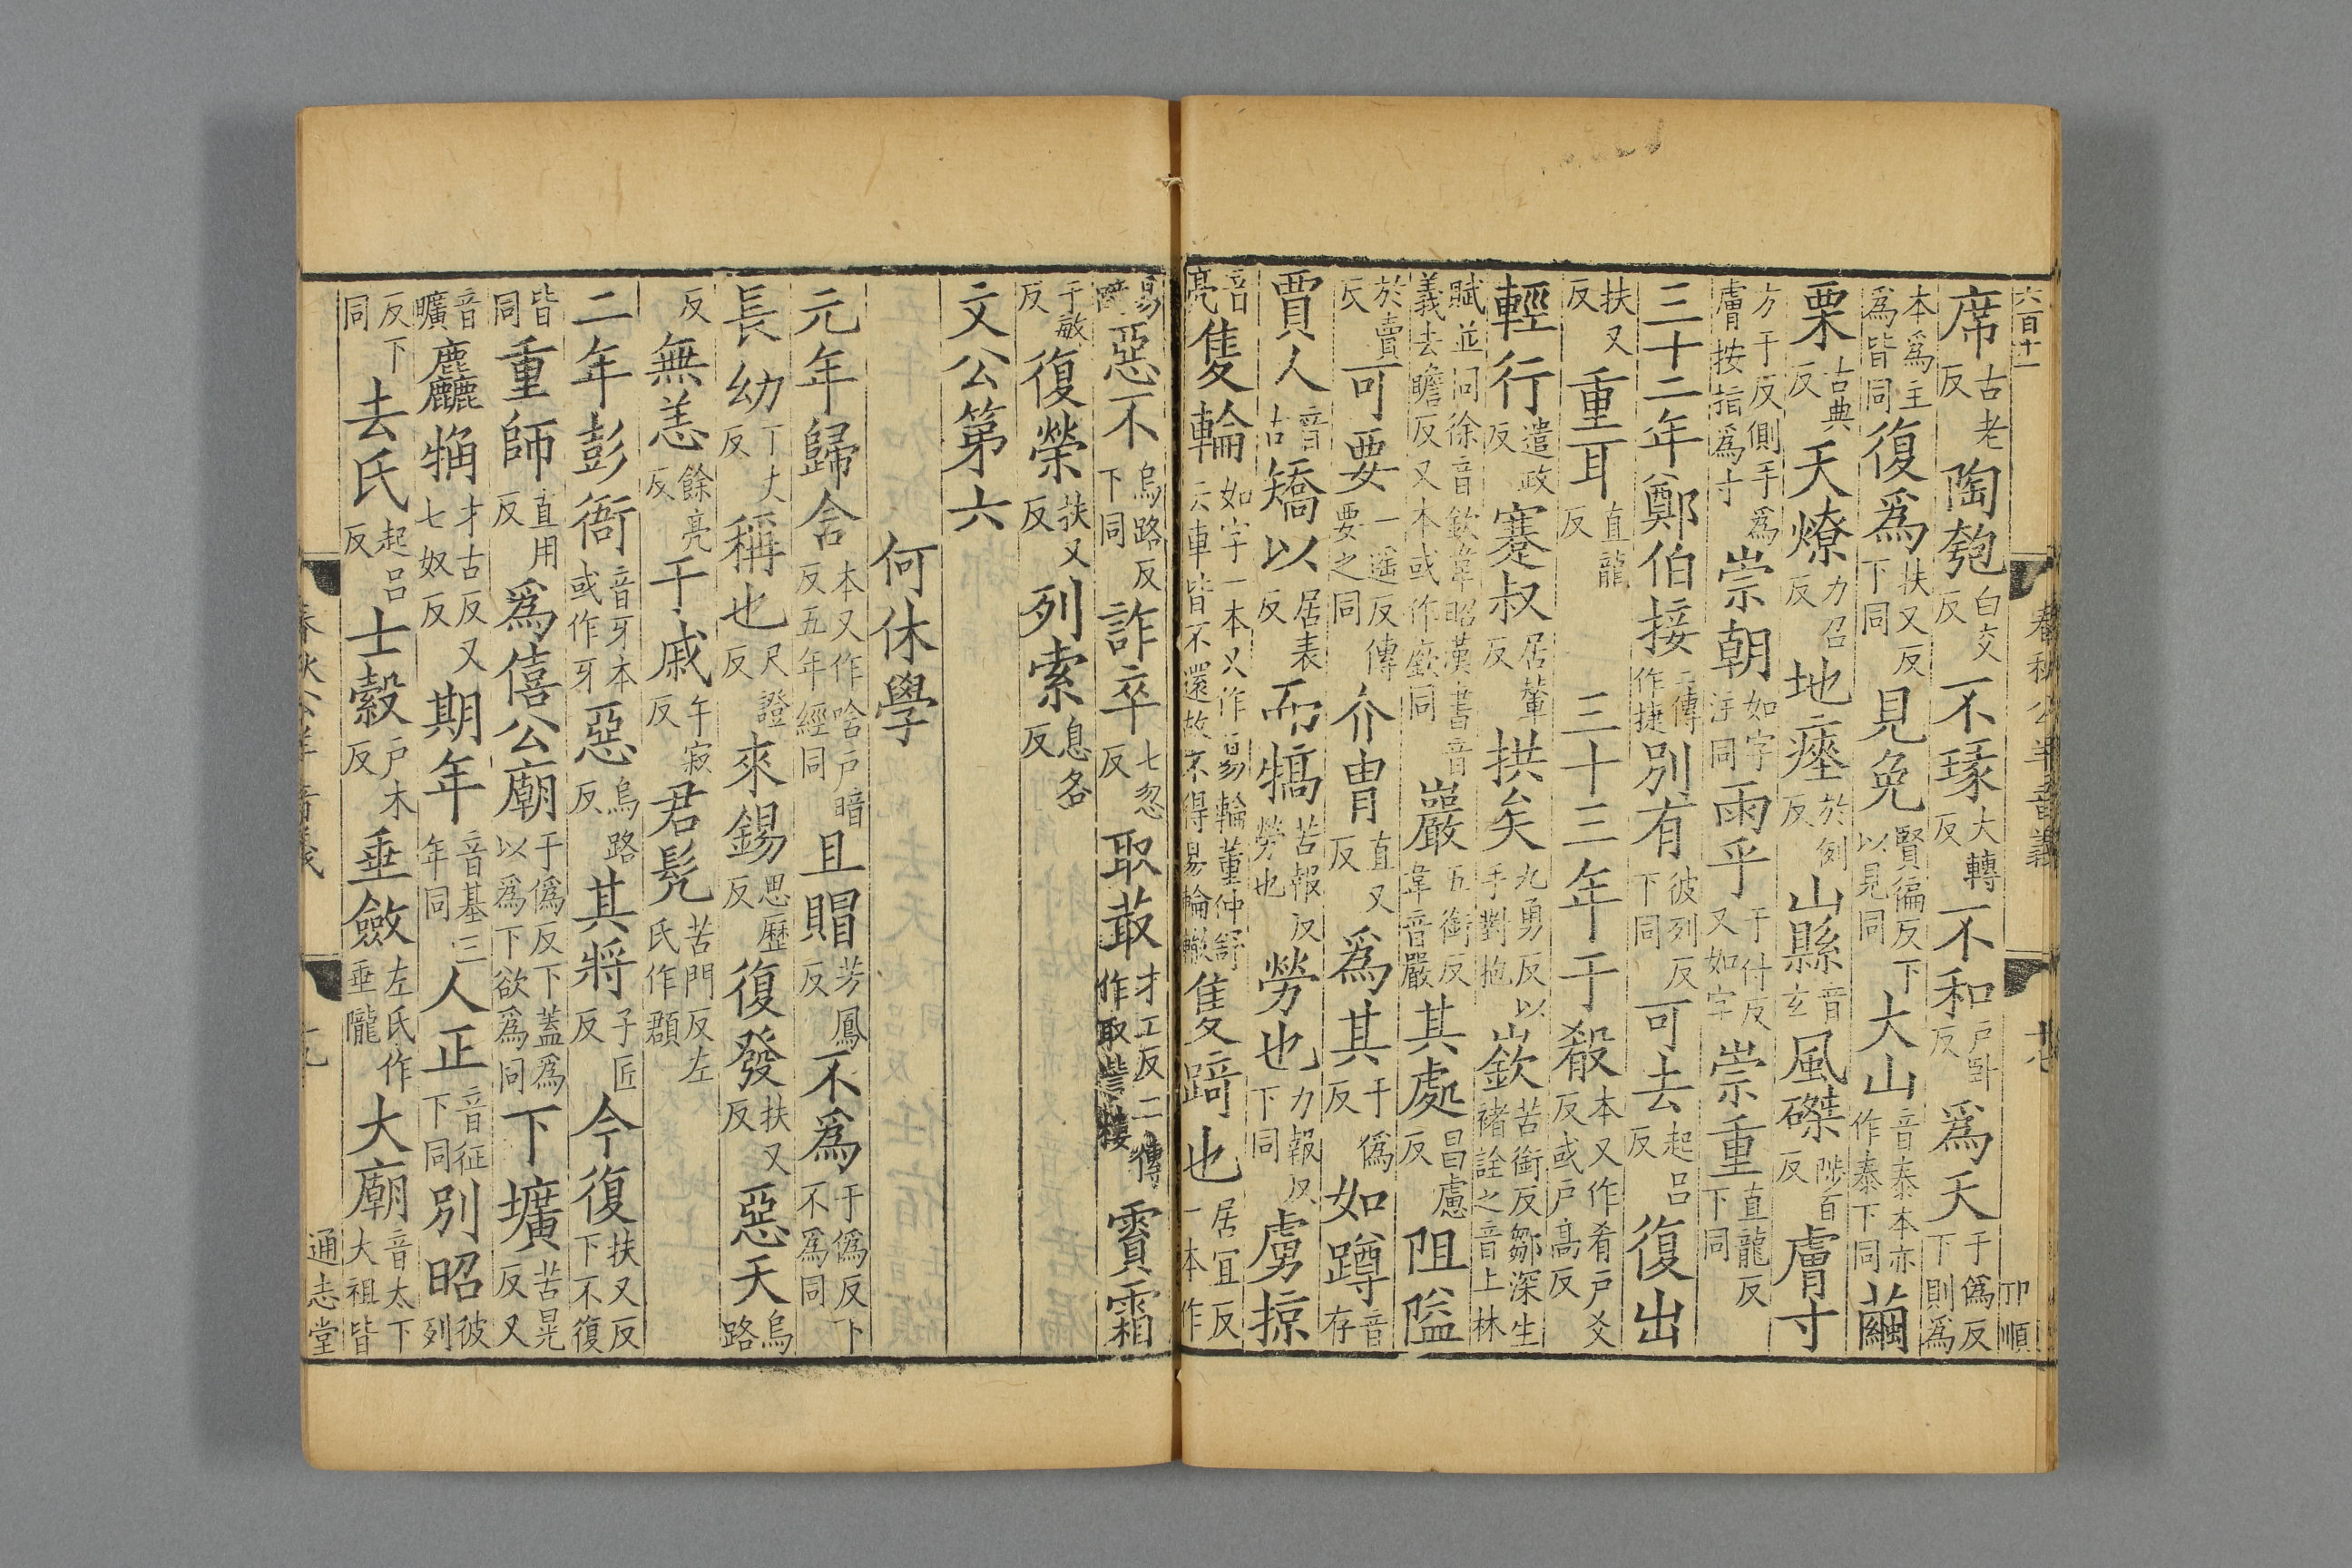 六百十一
春秋公羊音義
卯順
席古老反陶匏白交反不瑑大轉反不和戶卧反爲天于僞反下則爲
本爲主爲皆同復爲扶又反下同見免賢徧反下以見同大山音泰本亦作泰下同繭
栗古典反天燎力召反地瘞於例反山縣音玄風磔陟百反膚寸
方于反側手爲膚按指爲寸崇朝如字注同雨乎于付反又如字崇重直龍反下同
三十二年鄭伯接二傳作捷別有彼列反下同可去起呂反復出
扶又反重耳直龍反三十三年于殽本又作肴戶爻反或戶高反
輕行遣政反蹇叔居輦反拱矣九勇反以手對抱嶔苦銜反鄒深生褚詮之音上林
賦並同徐音欽韋昭漢書音義去瞻反又本或作廞同巖五銜反韋音嚴其處昌慮反阻隘
於賣反可要一遥反傳要之同介胄直又反爲其于僞反如蹲音存
賈人音古矯以居表反而犒苦報反勞也勞也力報反下同虜掠
音亮隻輪如字一本又作易輪董仲舒云車皆不還故不得易輪轍隻踦也居宜反一本作
易踦惡不烏路反下同詐卒七忽反取菆才工反二傳作取訾樓霣霜
于敏反復榮扶又反列索息各反
文公第六
何休學
元年歸含本又作唅戶暗反五年經同且賵芳鳳反不爲于僞反下不爲同
長幼丁丈反稱也尺證反來錫思歷反復發扶又反惡天烏路
反無恙餘亮反于戚午寂反君髡苦門反左氏作頵
二年彭衙音牙本或作牙惡烏路反其將子匠反今復扶又反下不復
皆同重師直用反爲僖公廟于僞反下蓋爲以爲下欲爲同下壙苦晃反又
音曠麤觕才古反又七奴反期年音基三年同人正音征下同別昭彼列
反下同去氏起呂反士縠戶木反垂斂左氏作垂隴大廟音太下大祖皆
通志堂